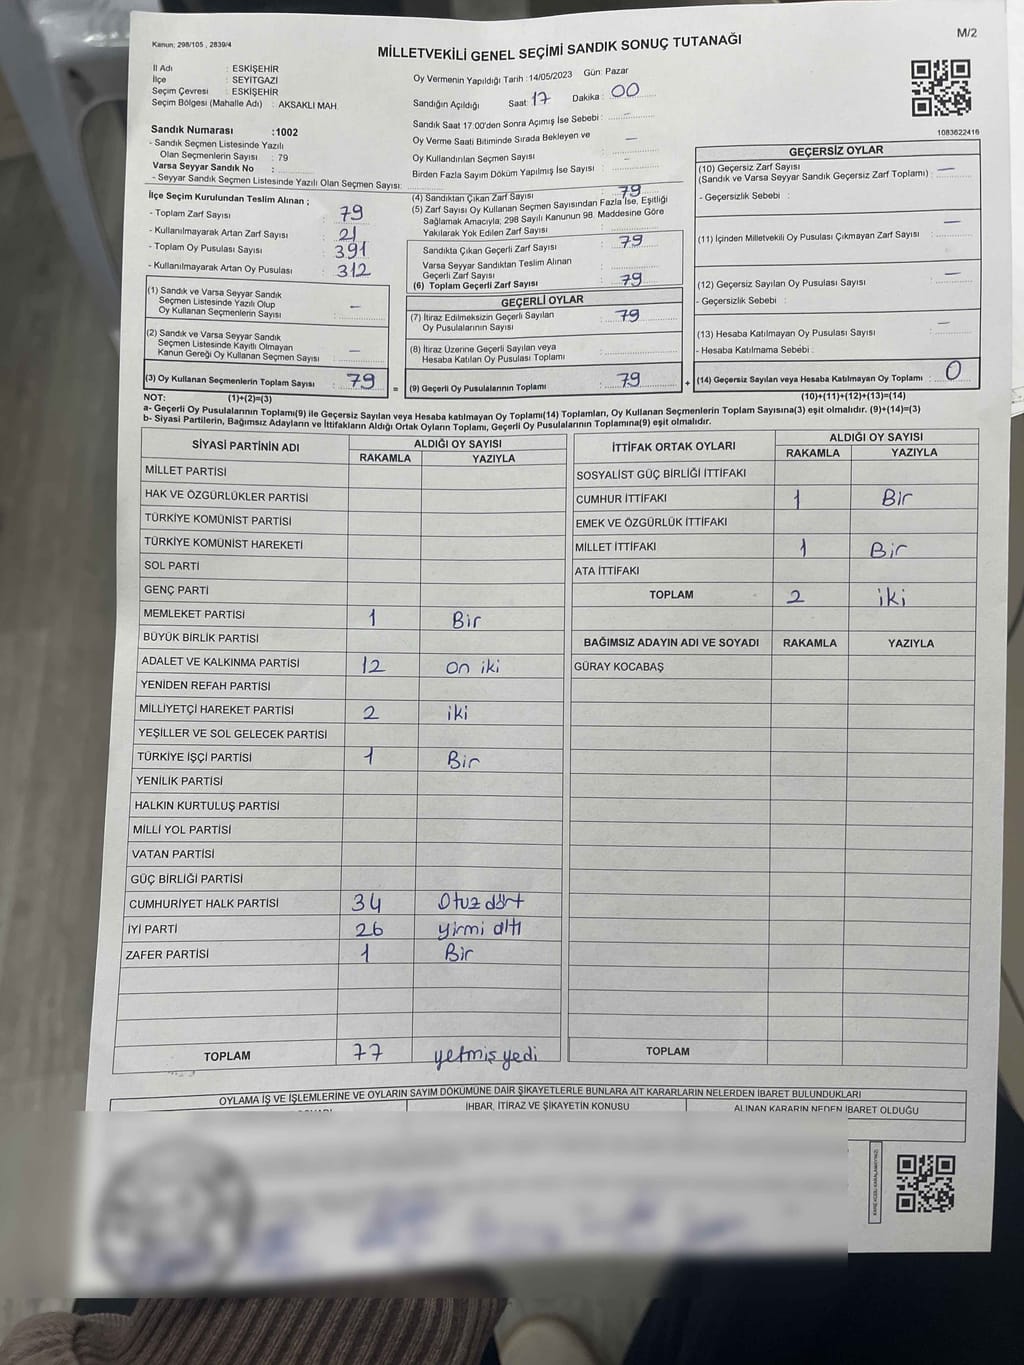 Kanun; 298/105 , 2839/4
M/2
MİLLETVEKİLİ GENEL SEÇİMİ SANDIK SONUÇ TUTANAĞI
İl Adı : ESKİŞEHİR
İlçe : SEYİTGAZİ
Seçim Çevresi : ESKİŞEHİR
Seçim Bölgesi (Mahalle Adı) : AKSAKLI MAH.
Sandık Numarası :1002
- Sandık Seçmen Listesinde Yazılı
Olan Seçmenlerin Sayısı : 79
Varsa Seyyar Sandık No :
- Seyyar Sandık Seçmen Listesinde Yazılı Olan Seçmen Sayısı:
Oy Vermenin Yapıldığı Tarih :14/05/2023 Gün: Pazar
Sandığın Açıldığı Saat: 17 Dakika : 00
Sandık Saat 17:00'den Sonra Açımış İse Sebebi : –
Oy Verme Saati Bitiminde Sırada Bekleyen ve
Oy Kullandırılan Seçmen Sayısı : –
Birden Fazla Sayım Döküm Yapılmış İse Sayısı : –
1083622416
İlçe Seçim Kurulundan Teslim Alınan ;
- Toplam Zarf Sayısı : 79
- Kullanılmayarak Artan Zarf Sayısı : 21
- Toplam Oy Pusulası Sayısı : 391
- Kullanılmayarak Artan Oy Pusulası : 312
(1) Sandık ve Varsa Seyyar Sandık
Seçmen Listesinde Yazılı Olup
Oy Kullanan Seçmenlerin Sayısı : –
(2) Sandık ve Varsa Seyyar Sandık
Seçmen Listesinde Kayıtlı Olmayan
Kanun Gereği Oy Kullanan Seçmen Sayısı : –
(3) Oy Kullanan Seçmenlerin Toplam Sayısı : 79 =
(4) Sandıktan Çıkan Zarf Sayısı : 79
(5) Zarf Sayısı Oy Kullanan Seçmen Sayısından Fazla İse, Eşitliği
Sağlamak Amacıyla; 298 Sayılı Kanunun 98. Maddesine Göre
Yakılarak Yok Edilen Zarf Sayısı :
Sandıkta Çıkan Geçerli Zarf Sayısı : 79
Varsa Seyyar Sandıktan Teslim Alınan
Geçerli Zarf Sayısı :
(6) Toplam Geçerli Zarf Sayısı : 79
GEÇERLİ OYLAR
(7) İtiraz Edilmeksizin Geçerli Sayılan
Oy Pusulalarının Sayısı : 79
(8) İtiraz Üzerine Geçerli Sayılan veya
Hesaba Katılan Oy Pusulası Toplamı :
(9) Geçerli Oy Pusulalarının Toplamı : 79 +
GEÇERSİZ OYLAR
(10) Geçersiz Zarf Sayısı
(Sandık ve Varsa Seyyar Sandık Geçersiz Zarf Toplamı) : –
- Geçersizlik Sebebi :
(11) İçinden Milletvekili Oy Pusulası Çıkmayan Zarf Sayısı : –
(12) Geçersiz Sayılan Oy Pusulası Sayısı : –
- Geçersizlik Sebebi :
(13) Hesaba Katılmayan Oy Pusulası Sayısı : –
- Hesaba Katılmama Sebebi :
(14) Geçersiz Sayılan veya Hesaba Katılmayan Oy Toplamı : 0
NOT: (1)+(2)=(3) (10)+(11)+(12)+(13)=(14)
a- Geçerli Oy Pusulalarının Toplamı(9) ile Geçersiz Sayılan veya Hesaba katılmayan Oy Toplamı(14) Toplamları, Oy Kullanan Seçmenlerin Toplam Sayısına(3) eşit olmalıdır. (9)+(14)=(3)
b- Siyasi Partilerin, Bağımsız Adayların ve İttifakların Aldığı Ortak Oyların Toplamı, Geçerli Oy Pusulalarının Toplamına(9) eşit olmalıdır.
SİYASİ PARTİNİN ADI ALDIĞI OY SAYISI
RAKAMLA YAZIYLA
MİLLET PARTİSİ
HAK VE ÖZGÜRLÜKLER PARTİSİ
TÜRKİYE KOMÜNİST PARTİSİ
TÜRKİYE KOMÜNİST HAREKETİ
SOL PARTİ
GENÇ PARTİ
MEMLEKET PARTİSİ 1 Bir
BÜYÜK BİRLİK PARTİSİ
ADALET VE KALKINMA PARTİSİ 12 on iki
YENİDEN REFAH PARTİSİ
MİLLİYETÇİ HAREKET PARTİSİ 2 iki
YEŞİLLER VE SOL GELECEK PARTİSİ
TÜRKİYE İŞÇİ PARTİSİ 1 Bir
YENİLİK PARTİSİ
HALKIN KURTULUŞ PARTİSİ
MİLLİ YOL PARTİSİ
VATAN PARTİSİ
GÜÇ BİRLİĞİ PARTİSİ
CUMHURİYET HALK PARTİSİ 34 Otuz dört
İYİ PARTİ 26 yirmi altı
ZAFER PARTİSİ 1 Bir
TOPLAM 77 yetmiş yedi
İTTİFAK ORTAK OYLARI ALDIĞI OY SAYISI
RAKAMLA YAZIYLA
SOSYALİST GÜÇ BİRLİĞİ İTTİFAKI
CUMHUR İTTİFAKI 1 Bir
EMEK VE ÖZGÜRLÜK İTTİFAKI
MİLLET İTTİFAKI 1 Bir
ATA İTTİFAKI
TOPLAM 2 iki
BAĞIMSIZ ADAYIN ADI VE SOYADI RAKAMLA YAZIYLA
GÜRAY KOCABAŞ
TOPLAM
OYLAMA İŞ VE İŞLEMLERİNE VE OYLARIN SAYIM DÖKÜMÜNE DAİR ŞİKAYETLERLE BUNLARA AİT KARARLARIN NELERDEN İBARET BULUNDUKLARI
İHBAR, İTİRAZ VE ŞİKAYETİN KONUSU ALINAN KARARIN NEDEN İBARET OLDUĞU